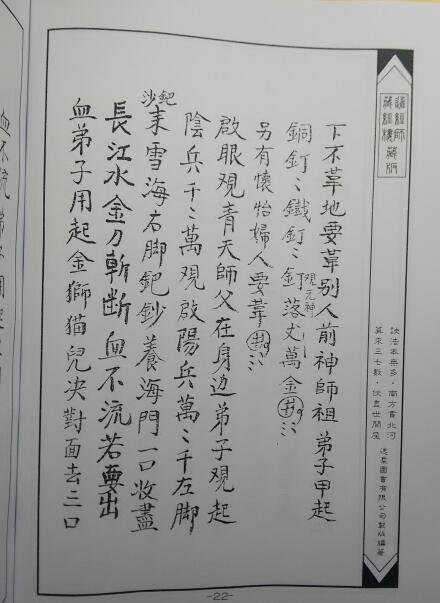 道經師
藏經樓藏版
訣法本無多，南方會北河
算來三七數，伏盡世間魔
逸群圖書有限公司製版編著
下不葦地要葦别人前神師祖 弟子甲起
銅釘〻鐵釘〻釘落丈萬金
現元神
另有懷怡婦人要葦
啟眼觀青天師父在身边弟子观起
陰兵千〻萬观啟陽兵萬〻千左脚
沙鈀
耒雪海右脚鈀鈔養海門一口收盡
長江水金刀斬断血不流若要出
血弟子用起金獅猫兒决對面去三口
血不流 弟子用
-22-